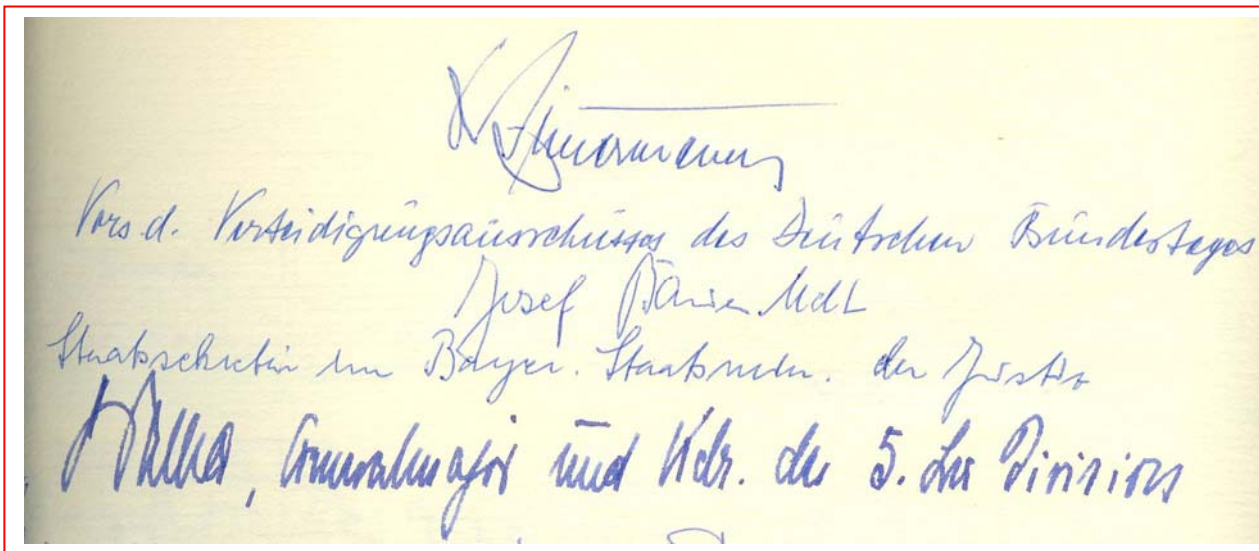 Zimmermann
Vors. d. Verteidigungsausschusses des Deutschen Bundestages
Josef Bauer MdL
Staatssekretär im Bayer. Staatsmin. der Justiz
Generalmajor und Kdr. der 5. Lw Division